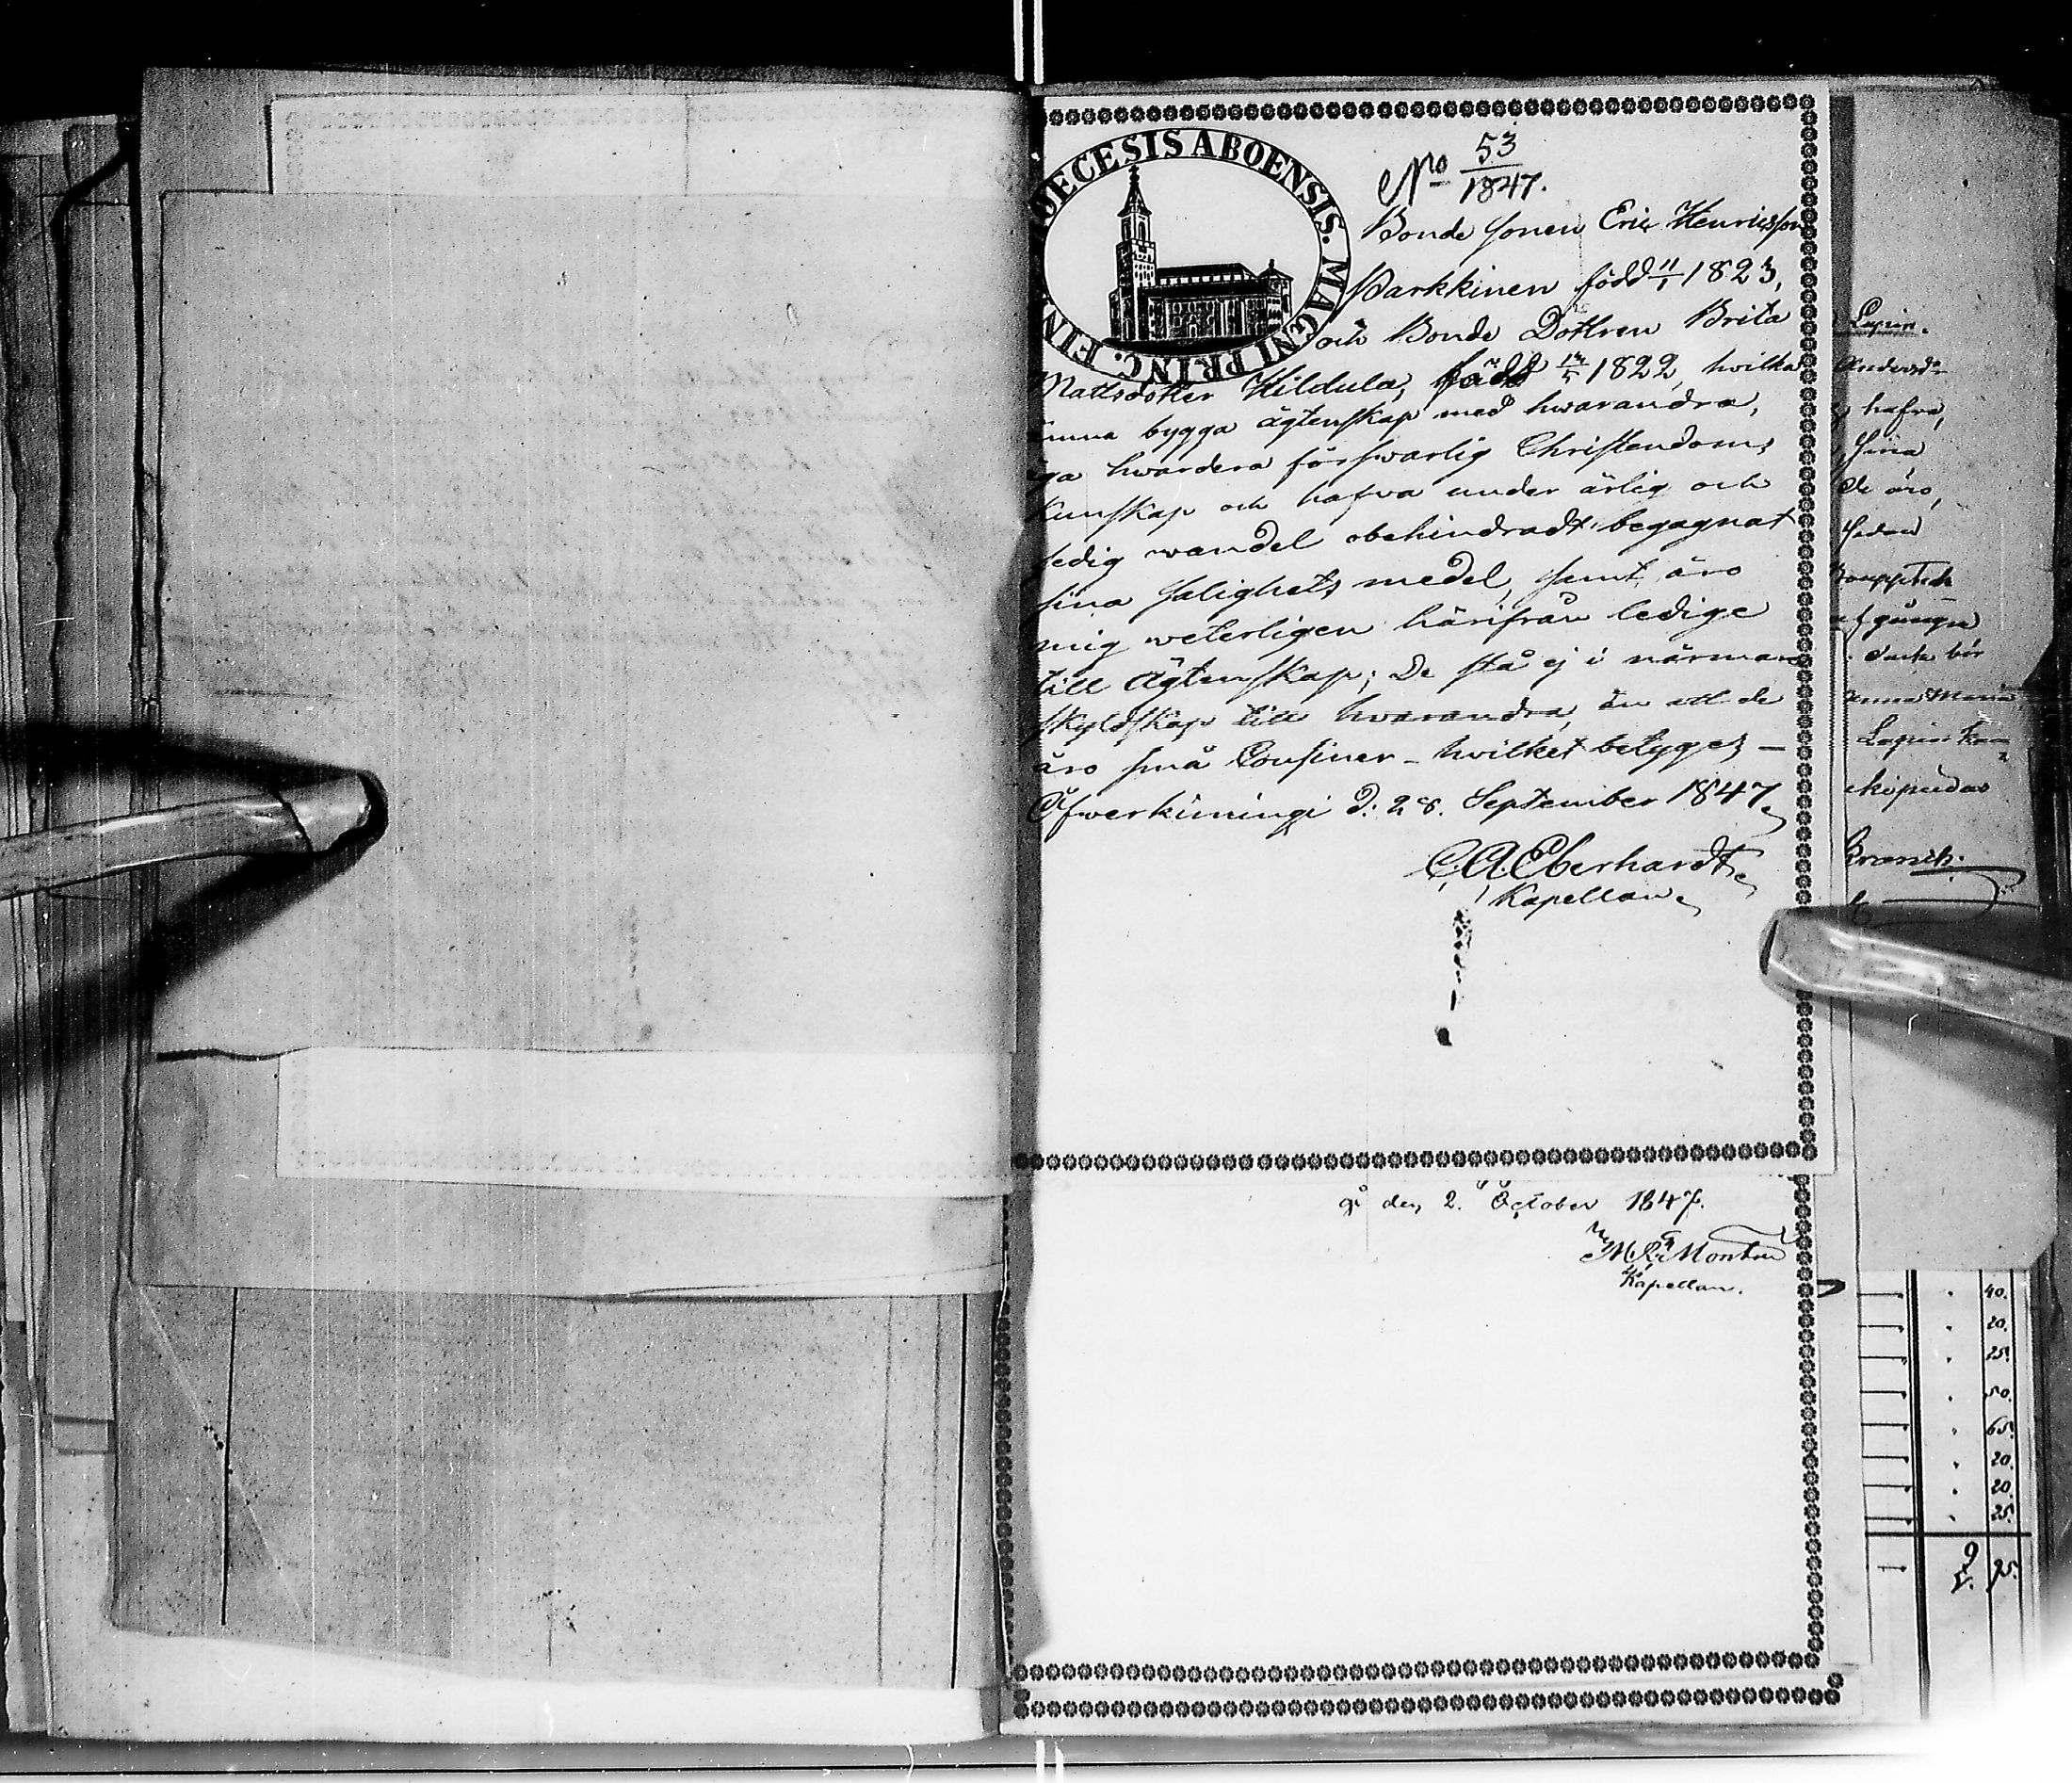 DECESIS ABOENSIS. MAGNI PRINC. FIN
No 53/1847.
Bonde Sonen Eric Henricsson
Parkkinen född 11/1 1823,
och Bonde Dottren Brita
Mattsdotter Kildula, född 1822, hvilka
ämna bygga ägtenskap med hwarandra,
äga hwardera förswarlig Christendoms
Kunskap och hafva under ärlig och
sedig wandel obehindradt begagnat
sina salighets medel, samt äro
mig weterligen härifrån ledige
till Ägtenskap; De stå ej i närmare
skyldskap till hwarandra, än att de
äro små Cousiner – hvilket betyges –
Öfwerkimingi d: 28. September 1847
C. A. Eberhardt
Kapellan
gi den 2. October 1847.
Kapellan.
Lapin.
Andersdr
hafva,
sina
de äro,
sedan
afgångn
Anna Maria
Lapin
40.
20.
25.
50.
65.
20.
20.
25.